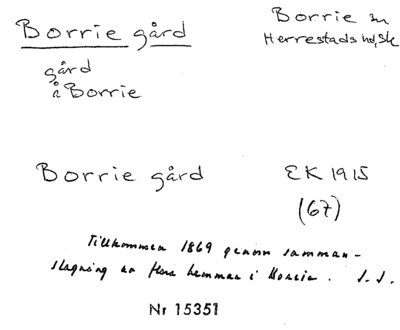 Borrie gård
Borrie sn
Herrestads hd, Sk
gård
å Borrie
Borrie gård
EK 1915
(67)
Tillkommen 1869 genom samman-
slagning av flera hemman i Borrie. S.S.
Nr 15351